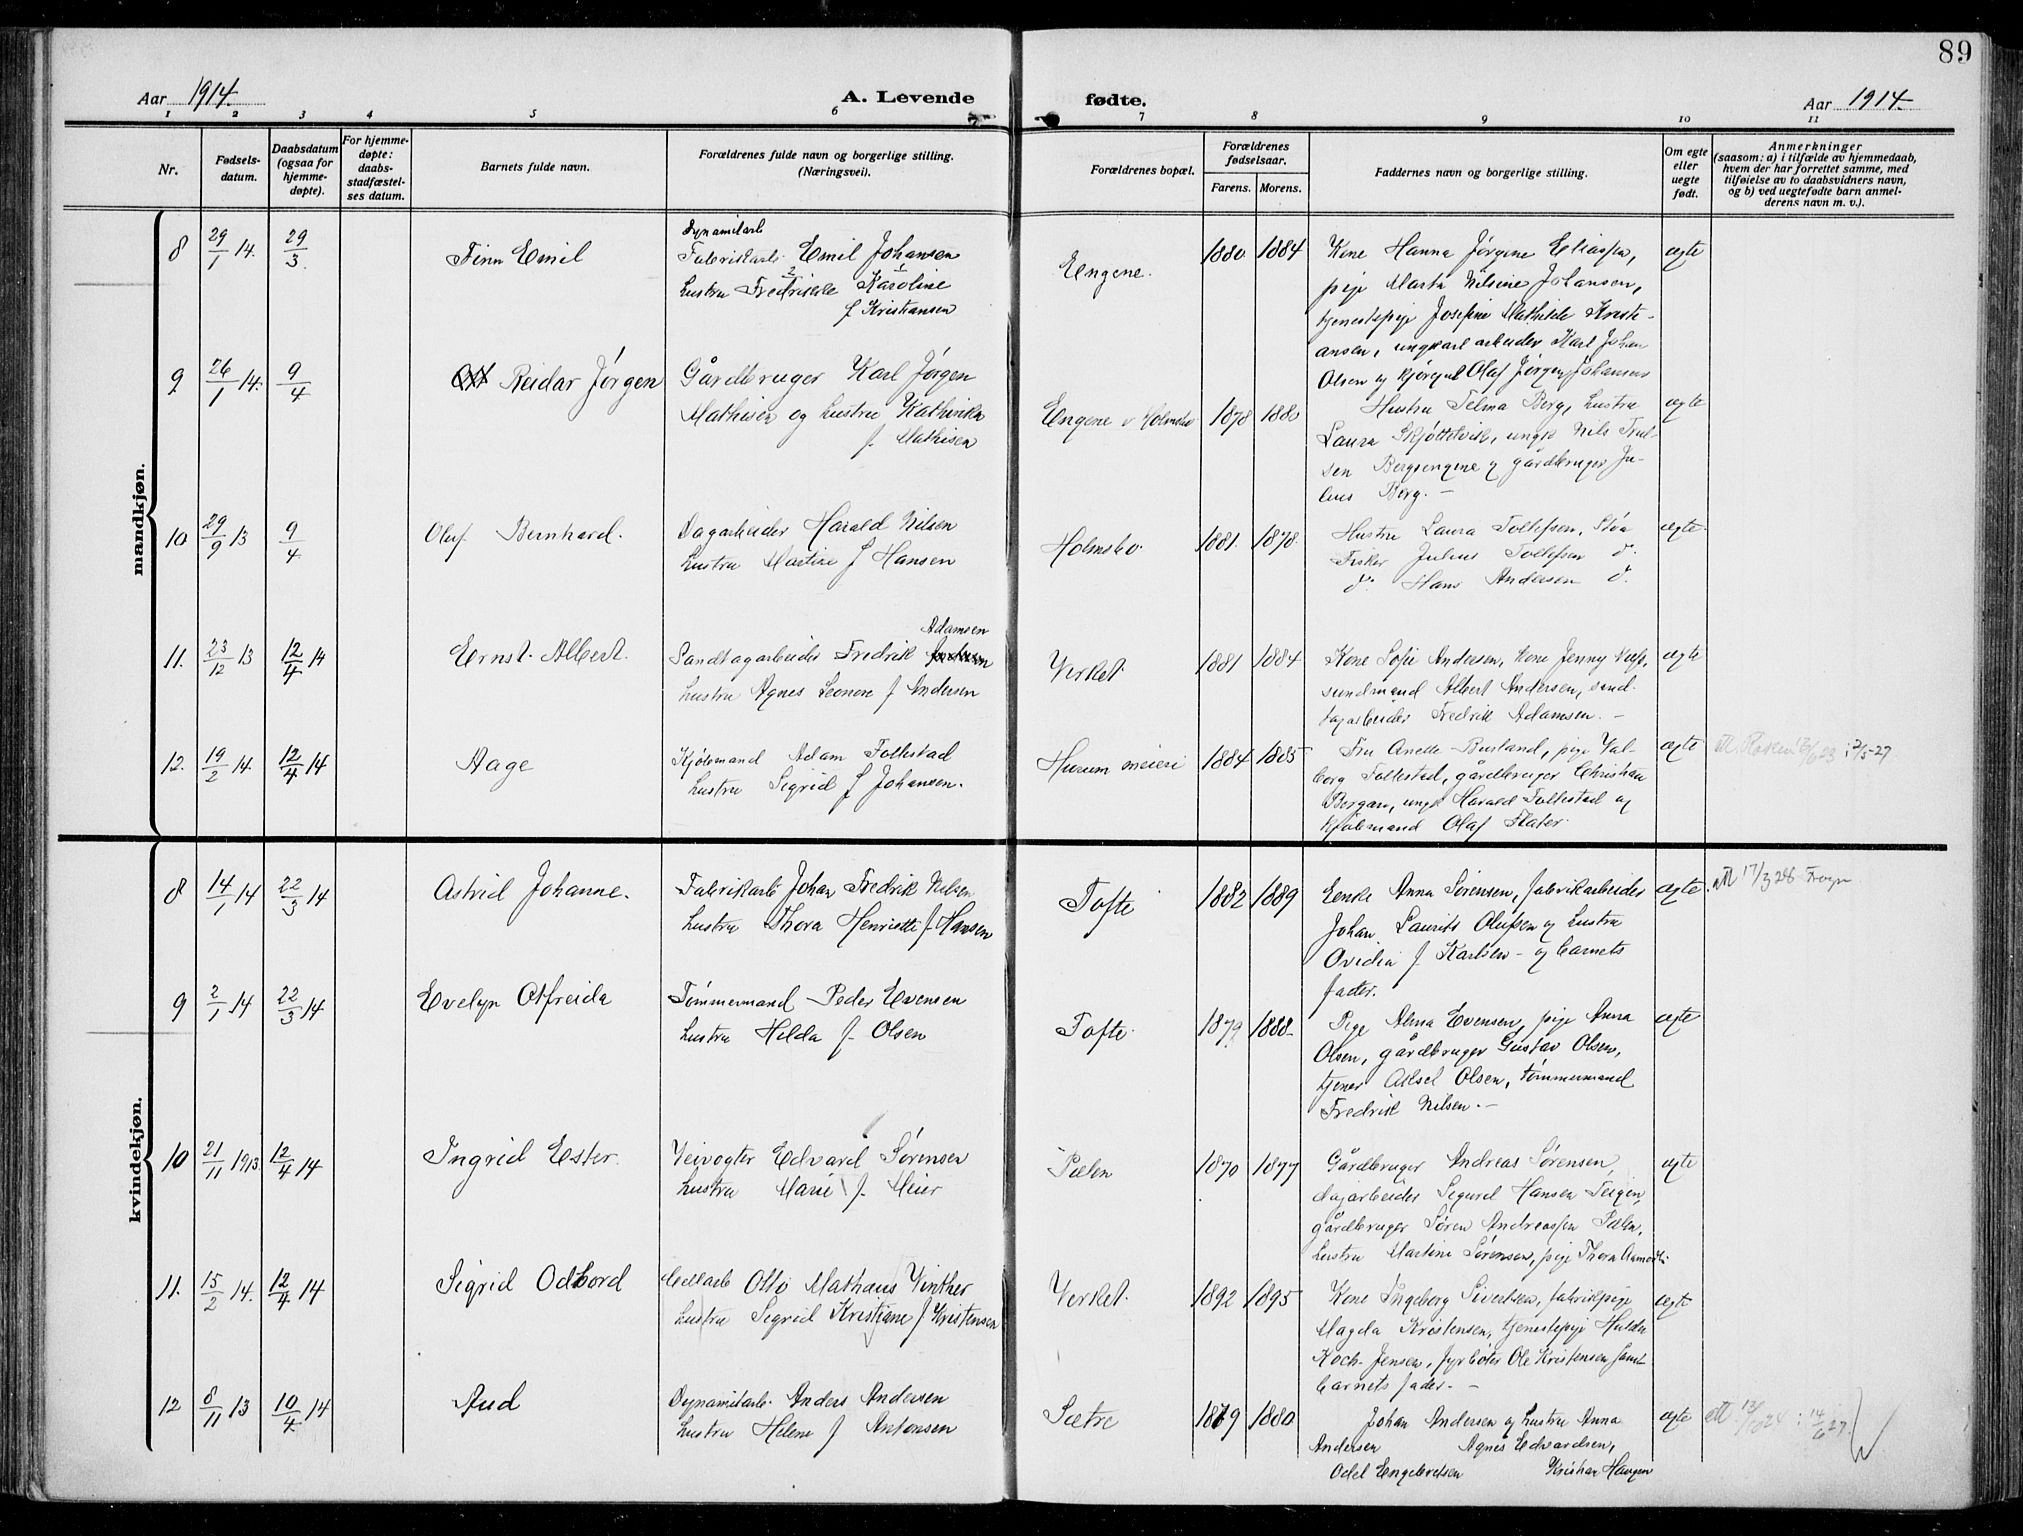 89
Aar 1914.
A. Levende
fødte.
Aar 1914.
1 2 3 4 5 6 7 8 9 10 11
Nr.
Fødsels-
datum.
Daabsdatum
(ogsaa for
hjemme-
døpte).
For hjemme-
døpte:
daabs-
stadfæstel-
ses datum.
Barnets fulde navn.
Forældrenes fulde navn og borgerlige stilling.
(Næringsvei).
Forældrenes bopæl.
Forældrenes
fødselsaar.
Farens. Morens.
Faddernes navn og borgerlige stilling.
Om egte
eller
uegte
født.
Anmerkninger
(saasom: a) i tilfælde av hjemmedaab,
hvem der har forrettet samme, med
tilføielse av to daabsvidners navn,
og b) ved uegtefødte barn anmel-
derens navn m. v.).
mandkjøn.
8 29/1 14. 29/3. Finn Emil
Dynamitarb
Fabrikarb. Emil Johansen
hustru Fredrikke Karoline
f Kristiansen
Engene. 1880. 1884
Kone Hanna Jørgine Eliassen,
pige Marta Nilsine Johansen,
tjenestepige Josefine Mathilde Kristi-
ansen, ungkarl arbeider Karl Johan
Olsen og Olaf Jørgen Johansen
egte
9 26/1 14. 9/4 Reidar Jørgen
Gårdbruger Karl Jørgen
Mathisen og hustru Kathinka
f. Mathisen
Engene v Holmsbo 1878 1880
Hustru Selma Berg, hustru
Laura Skjøttelvik, ungk Nils Trul-
sen Bergsengene og gårdbruger Ju-
lius Berg. —
egte
10 29/9 13 9/4 Oluf Bernhard.
Dagarbeider Harald Nilsen
hustru Martine f Hansen
Holmsbo. 1881. 1878.
Hustru Laura Tollefsen, Støa
Fisker Julius Tollefsen d.
d. Hans Andersen d.
egte.
11. 23/12 13 12/4 14 Ernst Albert.
Adamsen
Sandtagarbeider Fredrik
hustru Agnes Leonore f Andersen
Verket. 1881 1884
Kone Sofie Andersen, kone Jenny
sundmand Albert Andersen, sand-
tagarbeider Fredrik Adamsen. —
egte
12. 19/2 14. 12/4 14 Aage
Kjølemand Adam Follestad
hustru Sigrid f Johansen.
Hurum meieri 1884 1885
Fru Anette Burland, pige Val-
borg Follestad, gårdbruger Christian
Bergan, ungk Harald Follestad og
kjølemand Olaf Slater.
egte
kvindekjøn.
8 14/1 14 22/3 14 Astrid Johanne.
Fabrikarb Johan Fredrik Nilsen
hustru Thora Henriette f. Hansen
Tofte 1882 1889
Enke Anna Sørensen, fabrikarbeider
Johan Laurits Olufsen og hustru
Ovidia f. Karlsen — og barnets
fader.
egte. Att 17/3 28 Frogn
9 2/1 14 22/3 14 Evelyn Alfreida
Tømmermand Peder Evensen
hustru Hilda f. Olsen
Tofte. 1879 1888—
Pige Alma Evensen, pige Anna
Olsen, gårdbruger Gustav Olsen,
tjener Aksel Olsen, tømmermand
Fredrik Nilsen. —
egte
10 21/11 1913. 12/4 14 Ingrid Ester.
Veivogter Edvard Sørensen
hustru Marie f. Meier
Sælen 1870 1877
Gårdbruger Andreas Sørensen,
dagarbeider Sigurd Hansen Teigen,
gårdbruger Søren Andreassen Sælen,
hustru Martine Sørensen, pige Thora
egte
11. 15/2 14. 12/4 14 Sigrid Odbord
Otto Mathæus Vinther
hustru Sigrid Kristiane f Kristensen
Verket. 1892 1895
Kone Ingeborg Sivertsen, fabrikpige
Magda Kristensen, tjenestepige Hulda
Koch-Jensen, fyrbøter Ole Kristensen samt
barnets fader. —
egte
12 8/11 13 10/4 14 Aud
Dynamitarb. Anders Andersen
hustru Helene f Antonsen
Sætre 1879 1880
Johan Andersen og hustru Anna
Andersen Agnes Edvardsen,
Odel Engebretsen Kristian Haugen
egte